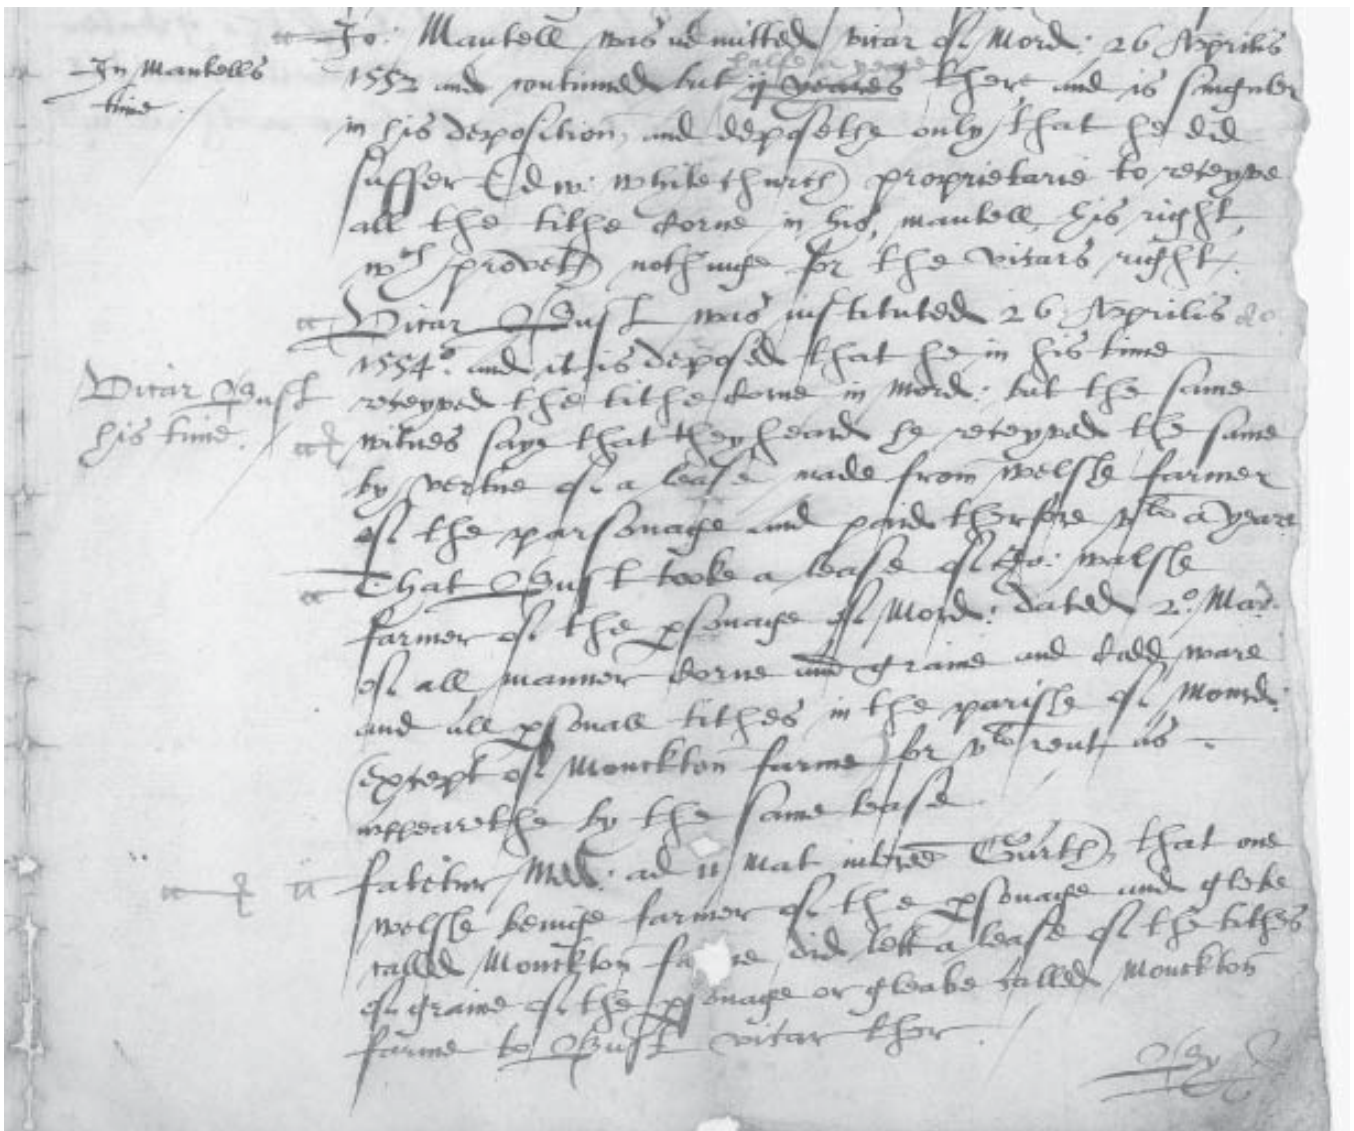 Jo: Mantell was admitted vicar of Mord: 26 Aprilis
In Mantells
time
halfe a yeare
1552 and contynued but ij yeares there and is singuler
in his deposition, and deposethe only that he did
suffer Edw: Whitchurch proprietarie to receyve
all the tithe corne in his, Mantell his right,
wch proveth nothinge for the vicars right.
Vicar Bust was instituted 26 Aprilis
1554o. and it is deposed that he in his time
Vicar Bust
his time.
receyved the tithe corne in Mord: but the same
witnes saye that they heard he receyved the same
by vertue of a lease made from Welshe farmer
of the parsonage and paid therfore vli a yeare
That Bust tooke a lease of Jo: Walshe
farmer of the psonage of Mord: dated 2o. Mar:
of all manner corne and graine and codd ware
and all psonall tithes in the parishe of Mourd:
except of Monckton farme for vli rent as
appearethe by the same lease
fatetur ad 11 mat that one
Welshe beinge farmer of the psonage and glebe
called Monckton fa re did lett a lease of the tithes
of graine of the psonage or gleabe called Monckton
farme to Bust vicar ther.